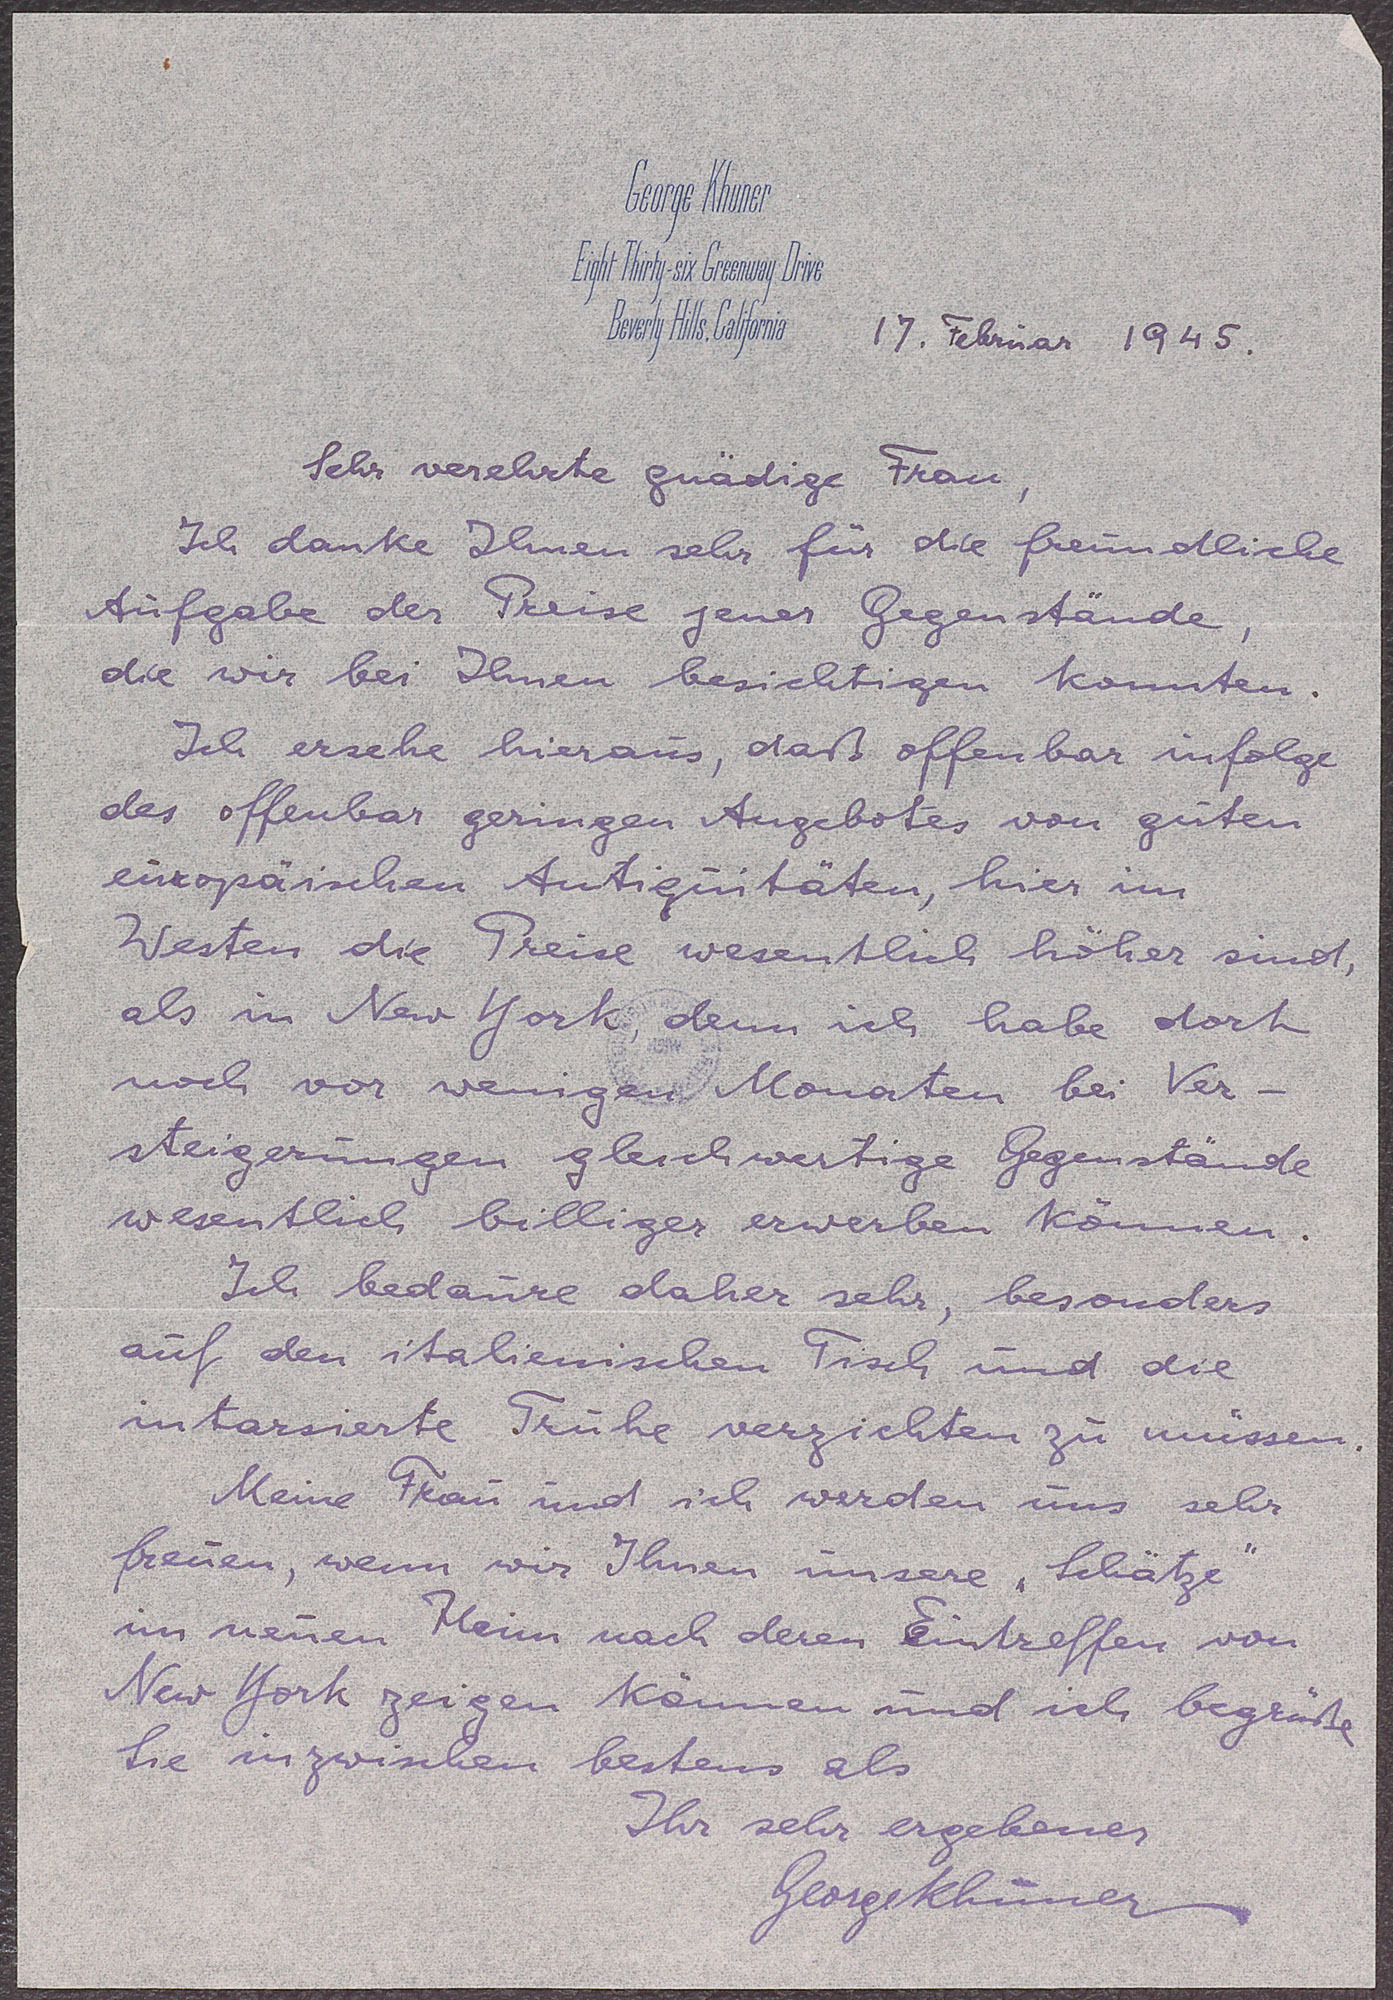 George Khuner
Eight Thirty-six Greenway Drive
Beverly Hills, California
17. Februar 1945.
Sehr verehrte gnädige Frau,
Ich danke Ihnen sehr für die freundliche
Aufgabe der Preise jener Gegenstände,
die wir bei Ihnen besichtigen konnten.
Ich ersehe hieraus, daß offenbar infolge
des offenbar geringen Angebotes von guten
europäischen Antiquitäten, hier im
Westen die Preise wesentlich höher sind,
als in New York, denn ich habe dort
noch vor wenigen Monaten bei Ver-
steigerungen gleichwertige Gegenstände
wesentlich billiger erwerben können.
Ich bedaure daher sehr, besonders
auf den italienischen Tisch und die
intarsierte Truhe verzichten zu müssen.
Meine Frau und ich werden uns sehr
freuen, wenn wir Ihnen unsere „Schätze"
im neuen Heim nach deren Eintreffen von
New York zeigen können und ich begrüße
Sie inzwischen bestens als
Ihr sehr ergebener
George Khuner